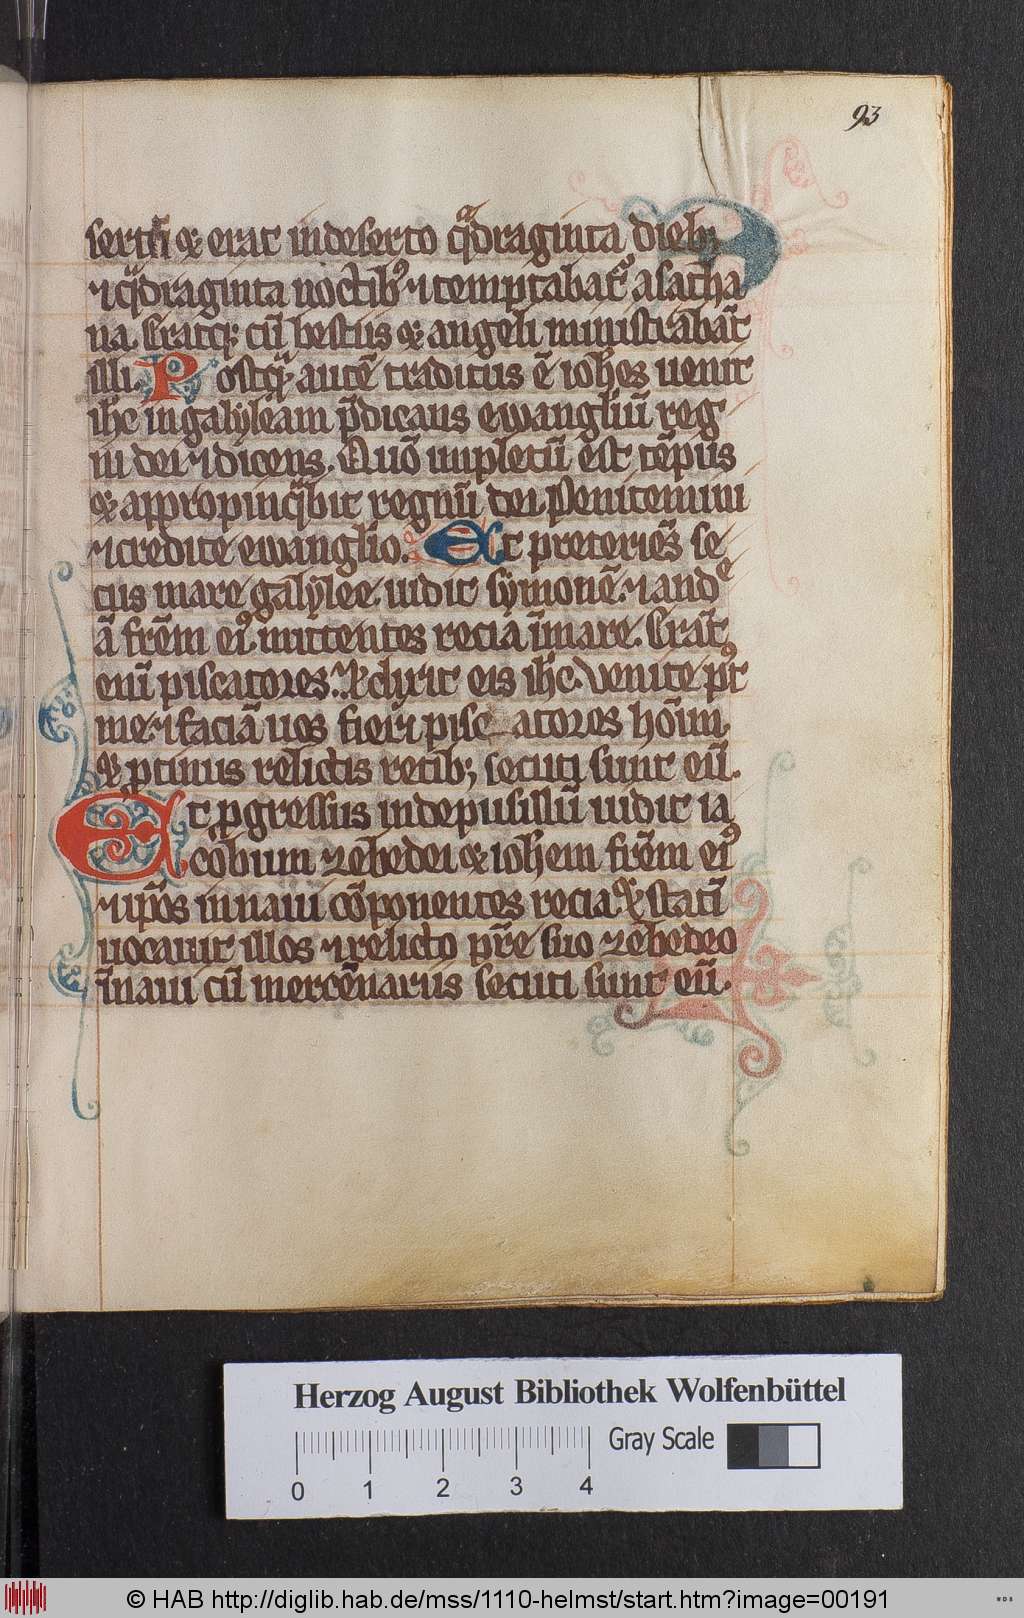 93
sertū ⁊ erat in deserto qͣdraginta dieb⁊
⁊ qͣdraginta noctib⁹ ⁊ temptabat᷑ a satha
na. Eratq; cū bestiis ⁊ angeli ministrabāt
illi. Postqͣ autē traditus ē ioh̄es uenit
ih̄c in galyleam p̄dicans ewangliū reg
ni dei ⁊ dicens. Quō impletū est tēpus
⁊ appropinqͣbit regnū dei Penitemini
⁊ credite ewanglio. Et preteriēs se
cus mare galylee. uidit symonē. ⁊ andͤ
ā frēm ei⁹ mittentes recia ī mare. Erāt
enī piscatores. Et dixit eis ih̄c. Venite p⁹t
me. ⁊ faciā uos fieri pisc atores hoīm.
⁊ ꝓtinus relictis retib; secuti sunt eū.
Et ꝓgressus inde pusillū uidit ia
cobum zebedei ⁊ ioh̄em frēm ei⁹
⁊ ip̄os in naui cōponentes recia ⁊ statī
uocauit illos ⁊ relicto pr̄e suo zebedeo
ī naui cū mercēnariis secuti sunt eū.
Herzog August Bibliothek Wolfenbüttel
Gray Scale
0 1 2 3 4
© HAB http://diglib.hab.de/mss/1110-helmst/start.htm?image=00191